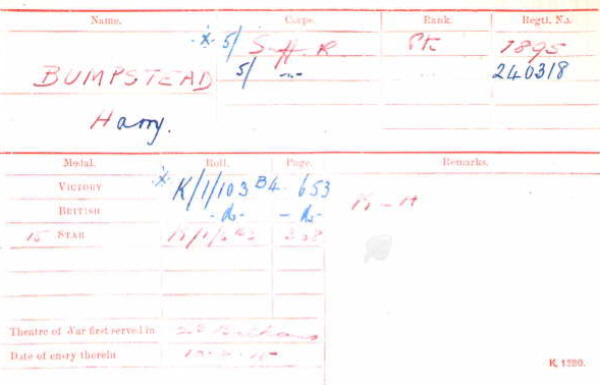 Name. Corps. Rank. Regtl. No.
x 5/ S. H. R Pte 1895
BUMPSTEAD 5/ -„- ... 240318
Harry.
Medal. Roll. Page. Remarks.
VICTORY x K/1/103 B4 653
BRITISH -do- -do-
15 STAR
Theatre of War first served in
Date of entry therein
K. 1380.